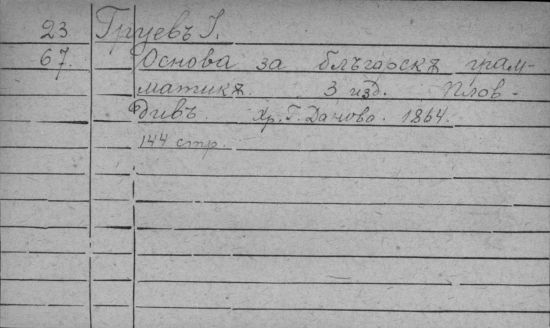 23 Груевъ І.
67. Основа за блъгарскѫ грам-
матикѫ. 3 изд. Плов-
дивъ. Хр. Г. Данова. 1864.
144 стр.